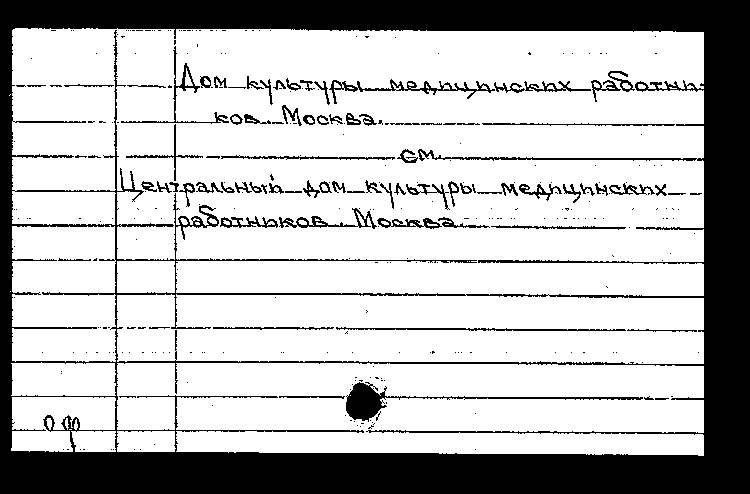 Дом культуры медицинских работни-
ков. Москва.
см.
Центральный дом культуры медицинских
работников. Москва.
оф